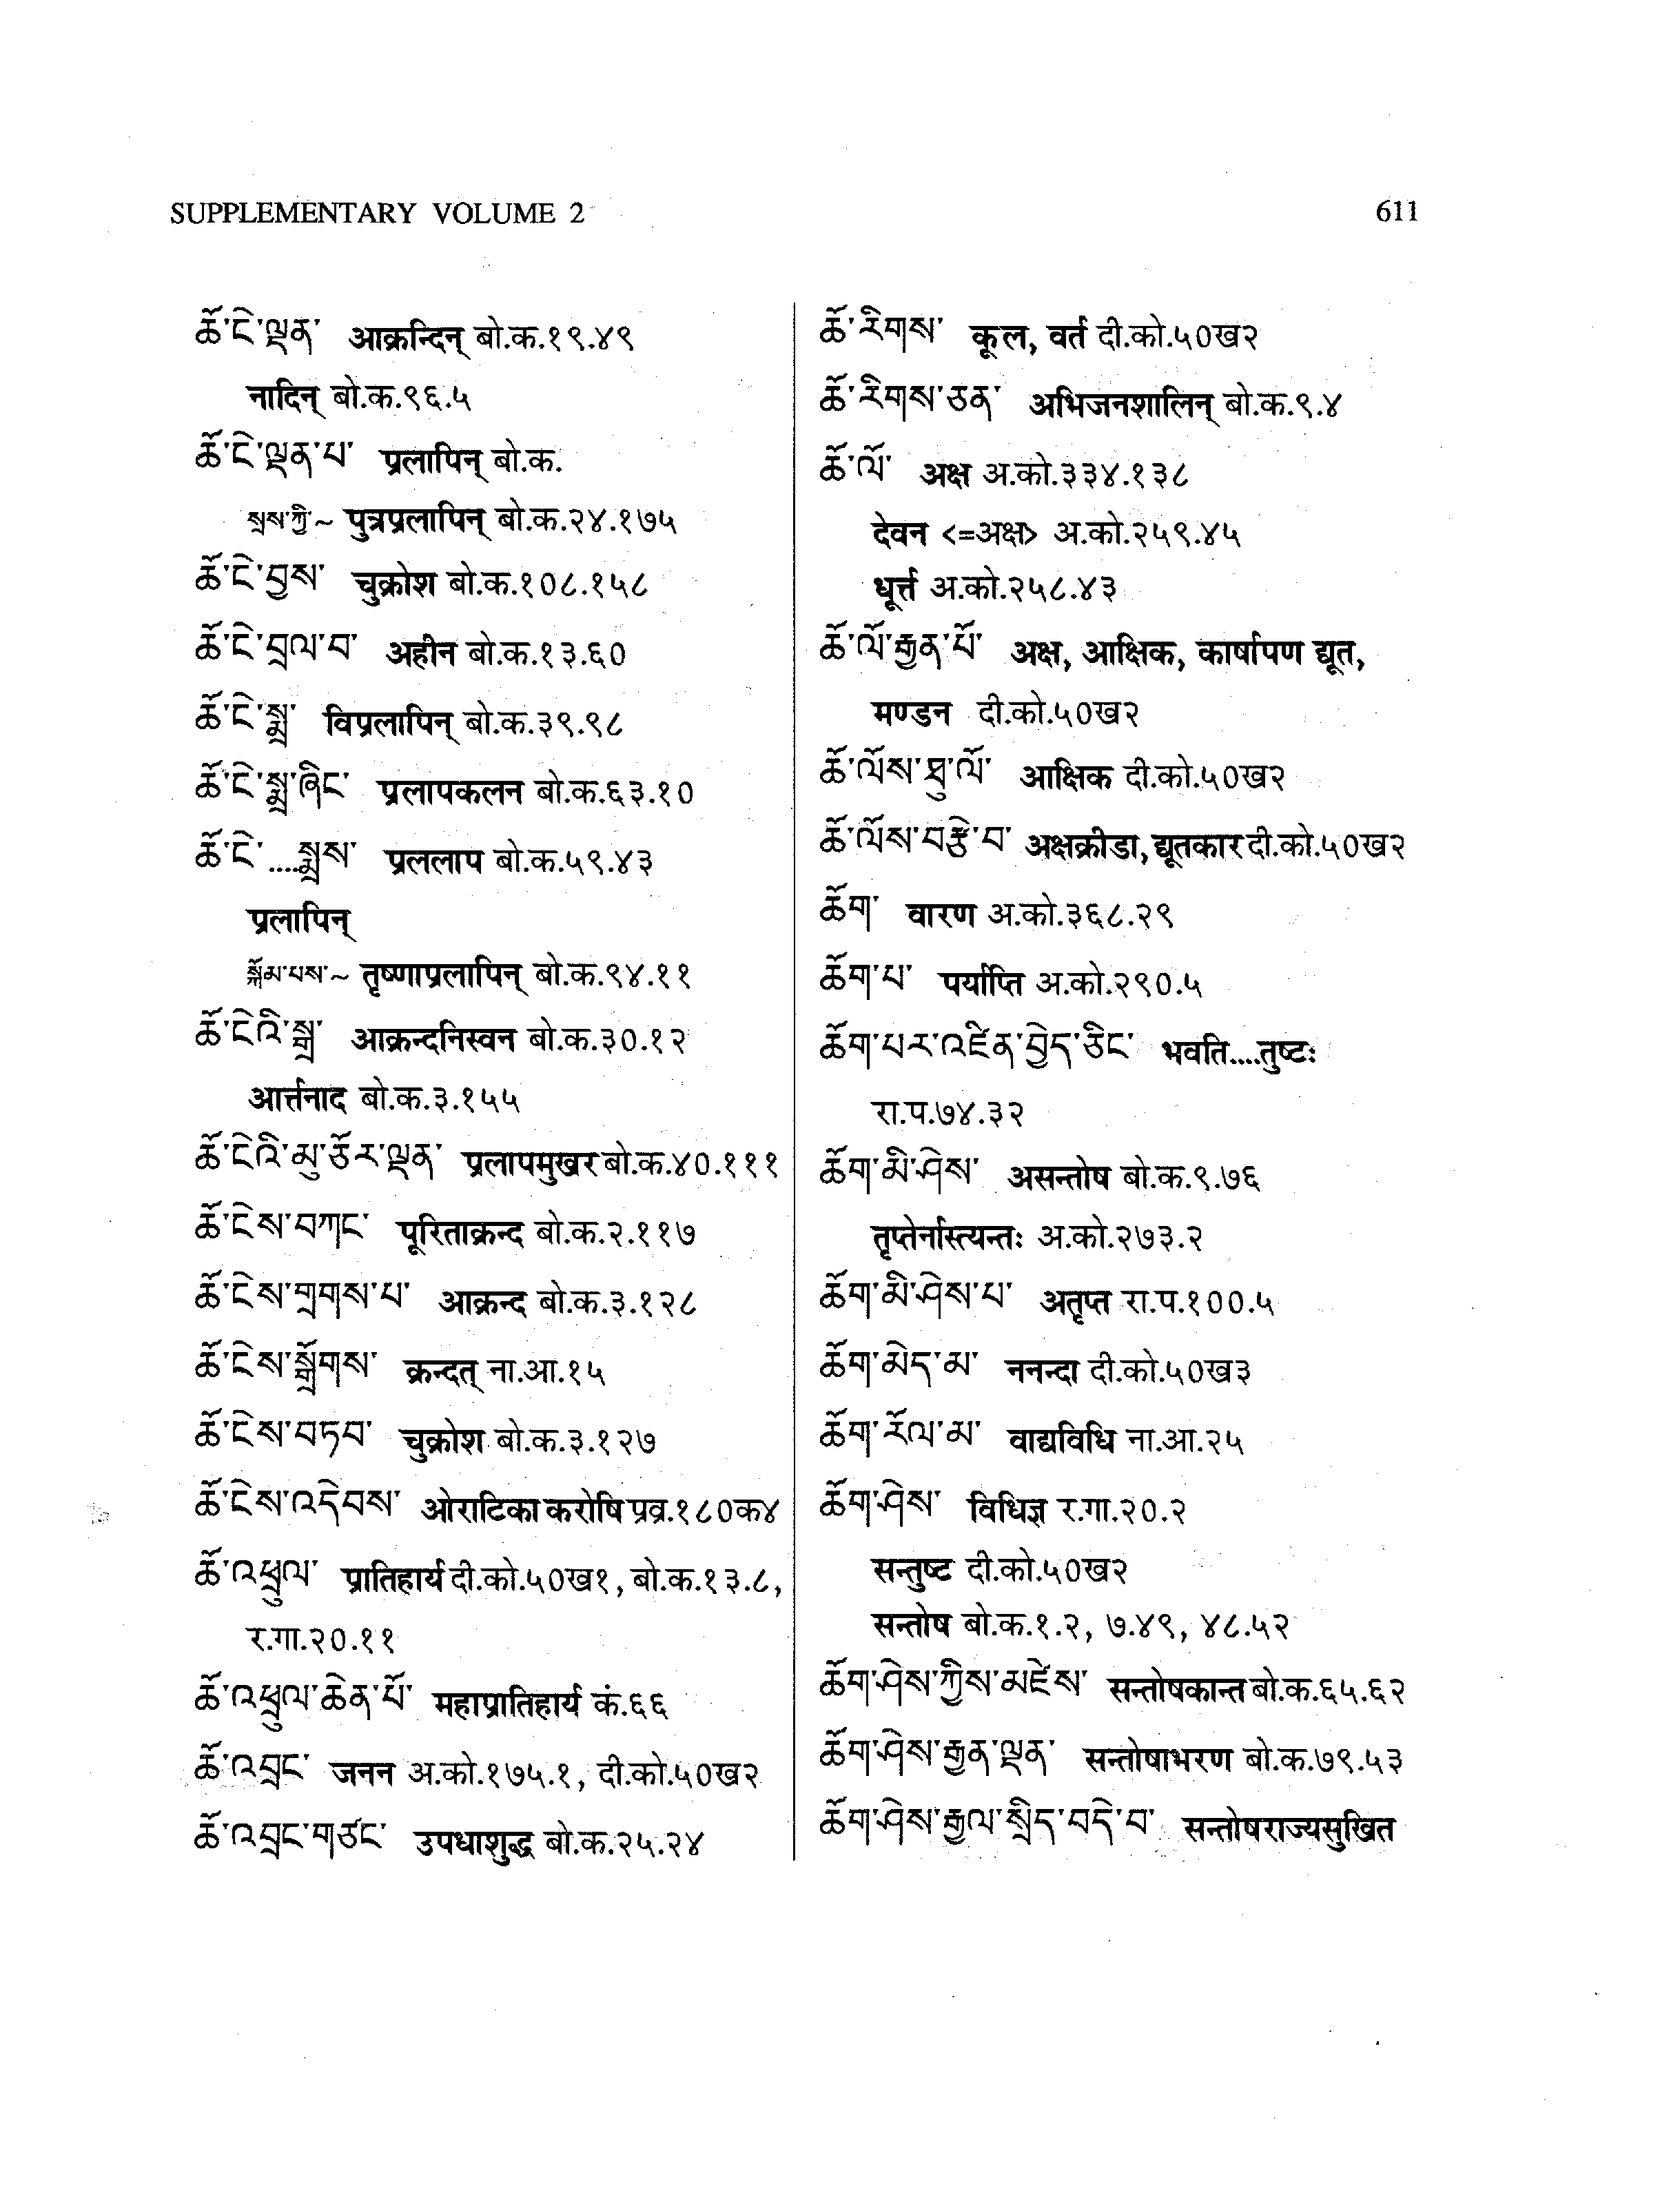 SUPPLEMENTARY VOLUME 2
611
ཆོ་ངེ་ལྡན་ आक्रन्दिन् बो.क.१९.४९
नादिन् बो.क.९६.५
ཆོ་ངེ་ལྡན་པ་ प्रलापिन् बो.क.
སྲས་ཀྱི་~ पुत्रप्रलापिन् बो.क.२४.१७५
ཆོ་ངེ་བྱས་ चुक्रोश बो.क.१०८.१५८
ཆོ་ངེ་བྲལ་བ་ अहीन बो.क.१३.६०
ཆོ་ངེ་སྨྲ་ विप्रलापिन् बो.क.३९.९८
ཆོ་ངེ་སྨྲ་ཞིང་ प्रलापकलन बो.क.६३.१०
ཆོ་ངེ་....སྨྲས་ प्रललाप बो.क.५९.४३
प्रलापिन्
སྐོམ་པས་~ तृष्णाप्रलापिन् बो.क.९४.११
ཆོ་ངེའི་སྒྲ་ आक्रन्दनिस्वन बो.क.३०.१२
आर्त्तनाद बो.क.३.१५५
ཆོ་ངེའི་མུ་ཅོར་ལྡན་ प्रलापमुखर बो.क.४०.१११
ཆོ་ངེས་བཀང་ पूरिताक्रन्द बो.क.२.११७
ཆོ་ངེས་གྲགས་པ་ आक्रन्द बो.क.३.१२८
ཆོ་ངེས་སྒྲོགས་ क्रन्दत् ना.आ.१५
ཆོ་ངེས་བཏབ་ चुक्रोश बो.क.३.१२७
ཆོ་ངེས་འདེབས་ ओराटिका करोषि प्रव्र.१८०क४
ཆོ་འཕྲུལ་ प्रातिहार्य दी.को.५०ख१, बो.क.१३.८,
र.गा.२०.११
ཆོ་འཕྲུལ་ཆེན་པོ་ महाप्रातिहार्य कं.६६
ཆོ་འབྲང་ जनन अ.को.१७५.१, दी.को.५०ख२
ཆོ་འབྲང་གཙང་ उपधाशुद्ध बो.क.२५.२४
ཆོ་རིགས་ कूल, वर्त दी.को.५०ख२
ཆོ་རིགས་ཅན་ अभिजनशालिन् बो.क.९.४
ཆོ་ལོ་ अक्ष अ.को.३३४.१३८
देवन <=अक्ष> अ.को.२५९.४५
धूर्त्त अ.को.२५८.४३
ཆོ་ལོ་རྒྱན་པོ་ अक्ष, आक्षिक, कार्षापण द्यूत,
मण्डन दी.को.५०ख२
ཆོ་ལོས་ཐུ་ལོ་ आक्षिक दी.को.५०ख२
ཆོ་ལོས་བརྩེ་བ་ अक्षक्रीडा, द्यूतकार दी.को.५०ख२
ཆོག་ वारण अ.को.३६८.२९
ཆོག་པ་ पर्याप्ति अ.को.२९०.५
ཆོག་པར་འཛིན་བྱེད་ཅིང་ भवति....तुष्टः
रा.प.७४.३२
ཆོག་མི་ཤེས་ असन्तोष बो.क.९.७६
तृप्तेर्नास्त्यन्तः अ.को.२७३.२
ཆོག་མི་ཤེས་པ་ अतृप्त रा.प.१००.५
ཆོག་མེད་མ་ ननन्दा दी.को.५०ख३
ཆོག་རོལ་མ་ वाद्यविधि ना.आ.२५
ཆོག་ཤེས་ विधिज्ञ र.गा.२०.२
सन्तुष्ट दी.को.५०ख२
सन्तोष बो.क.१.२, ७.४९, ४८.५२
ཆོག་ཤེས་ཀྱིས་མཛེས་ सन्तोषकान्त बो.क.६५.६२
ཆོག་ཤེས་རྒྱན་ལྡན་ सन्तोषाभरण बो.क.७९.५३
ཆོག་ཤེས་རྒྱལ་སྲིད་བདེ་བ་ सन्तोषराज्यसुखित